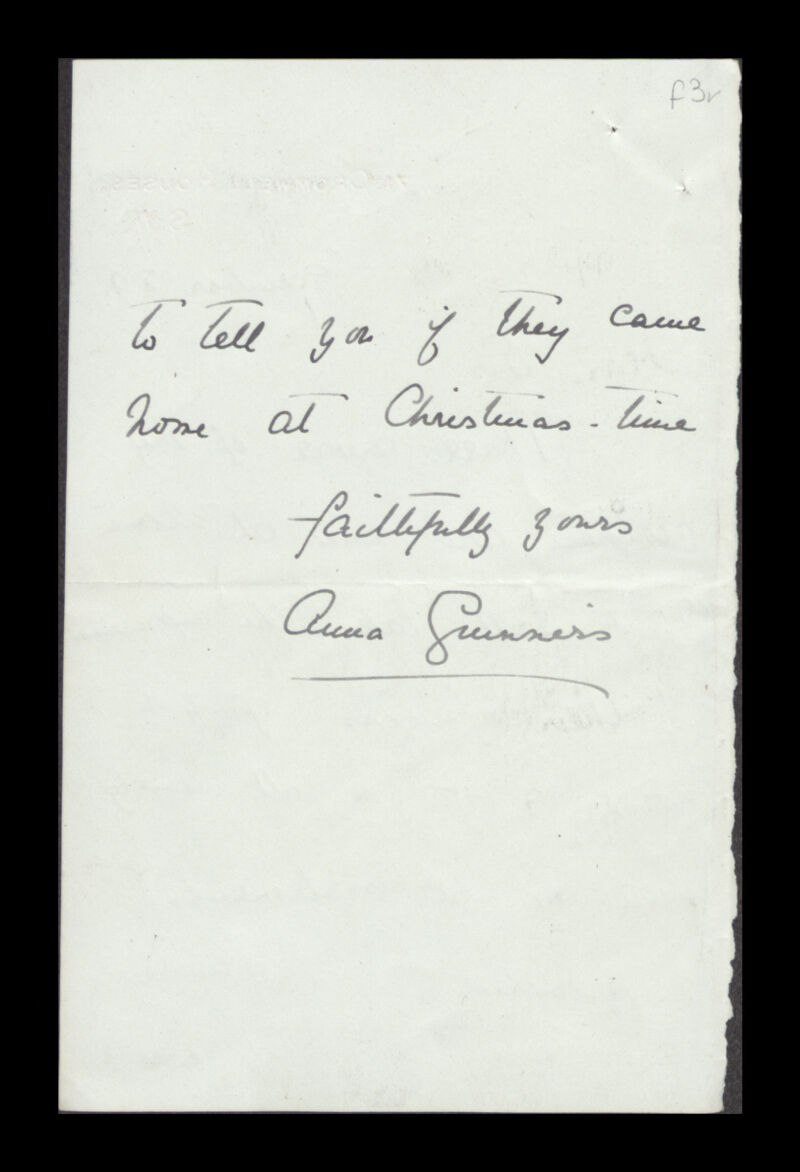 f3v
to tell you if they came
home at Christmas-time
faithfully yours
Anna